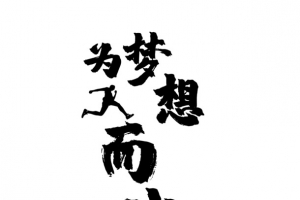 为梦想
而